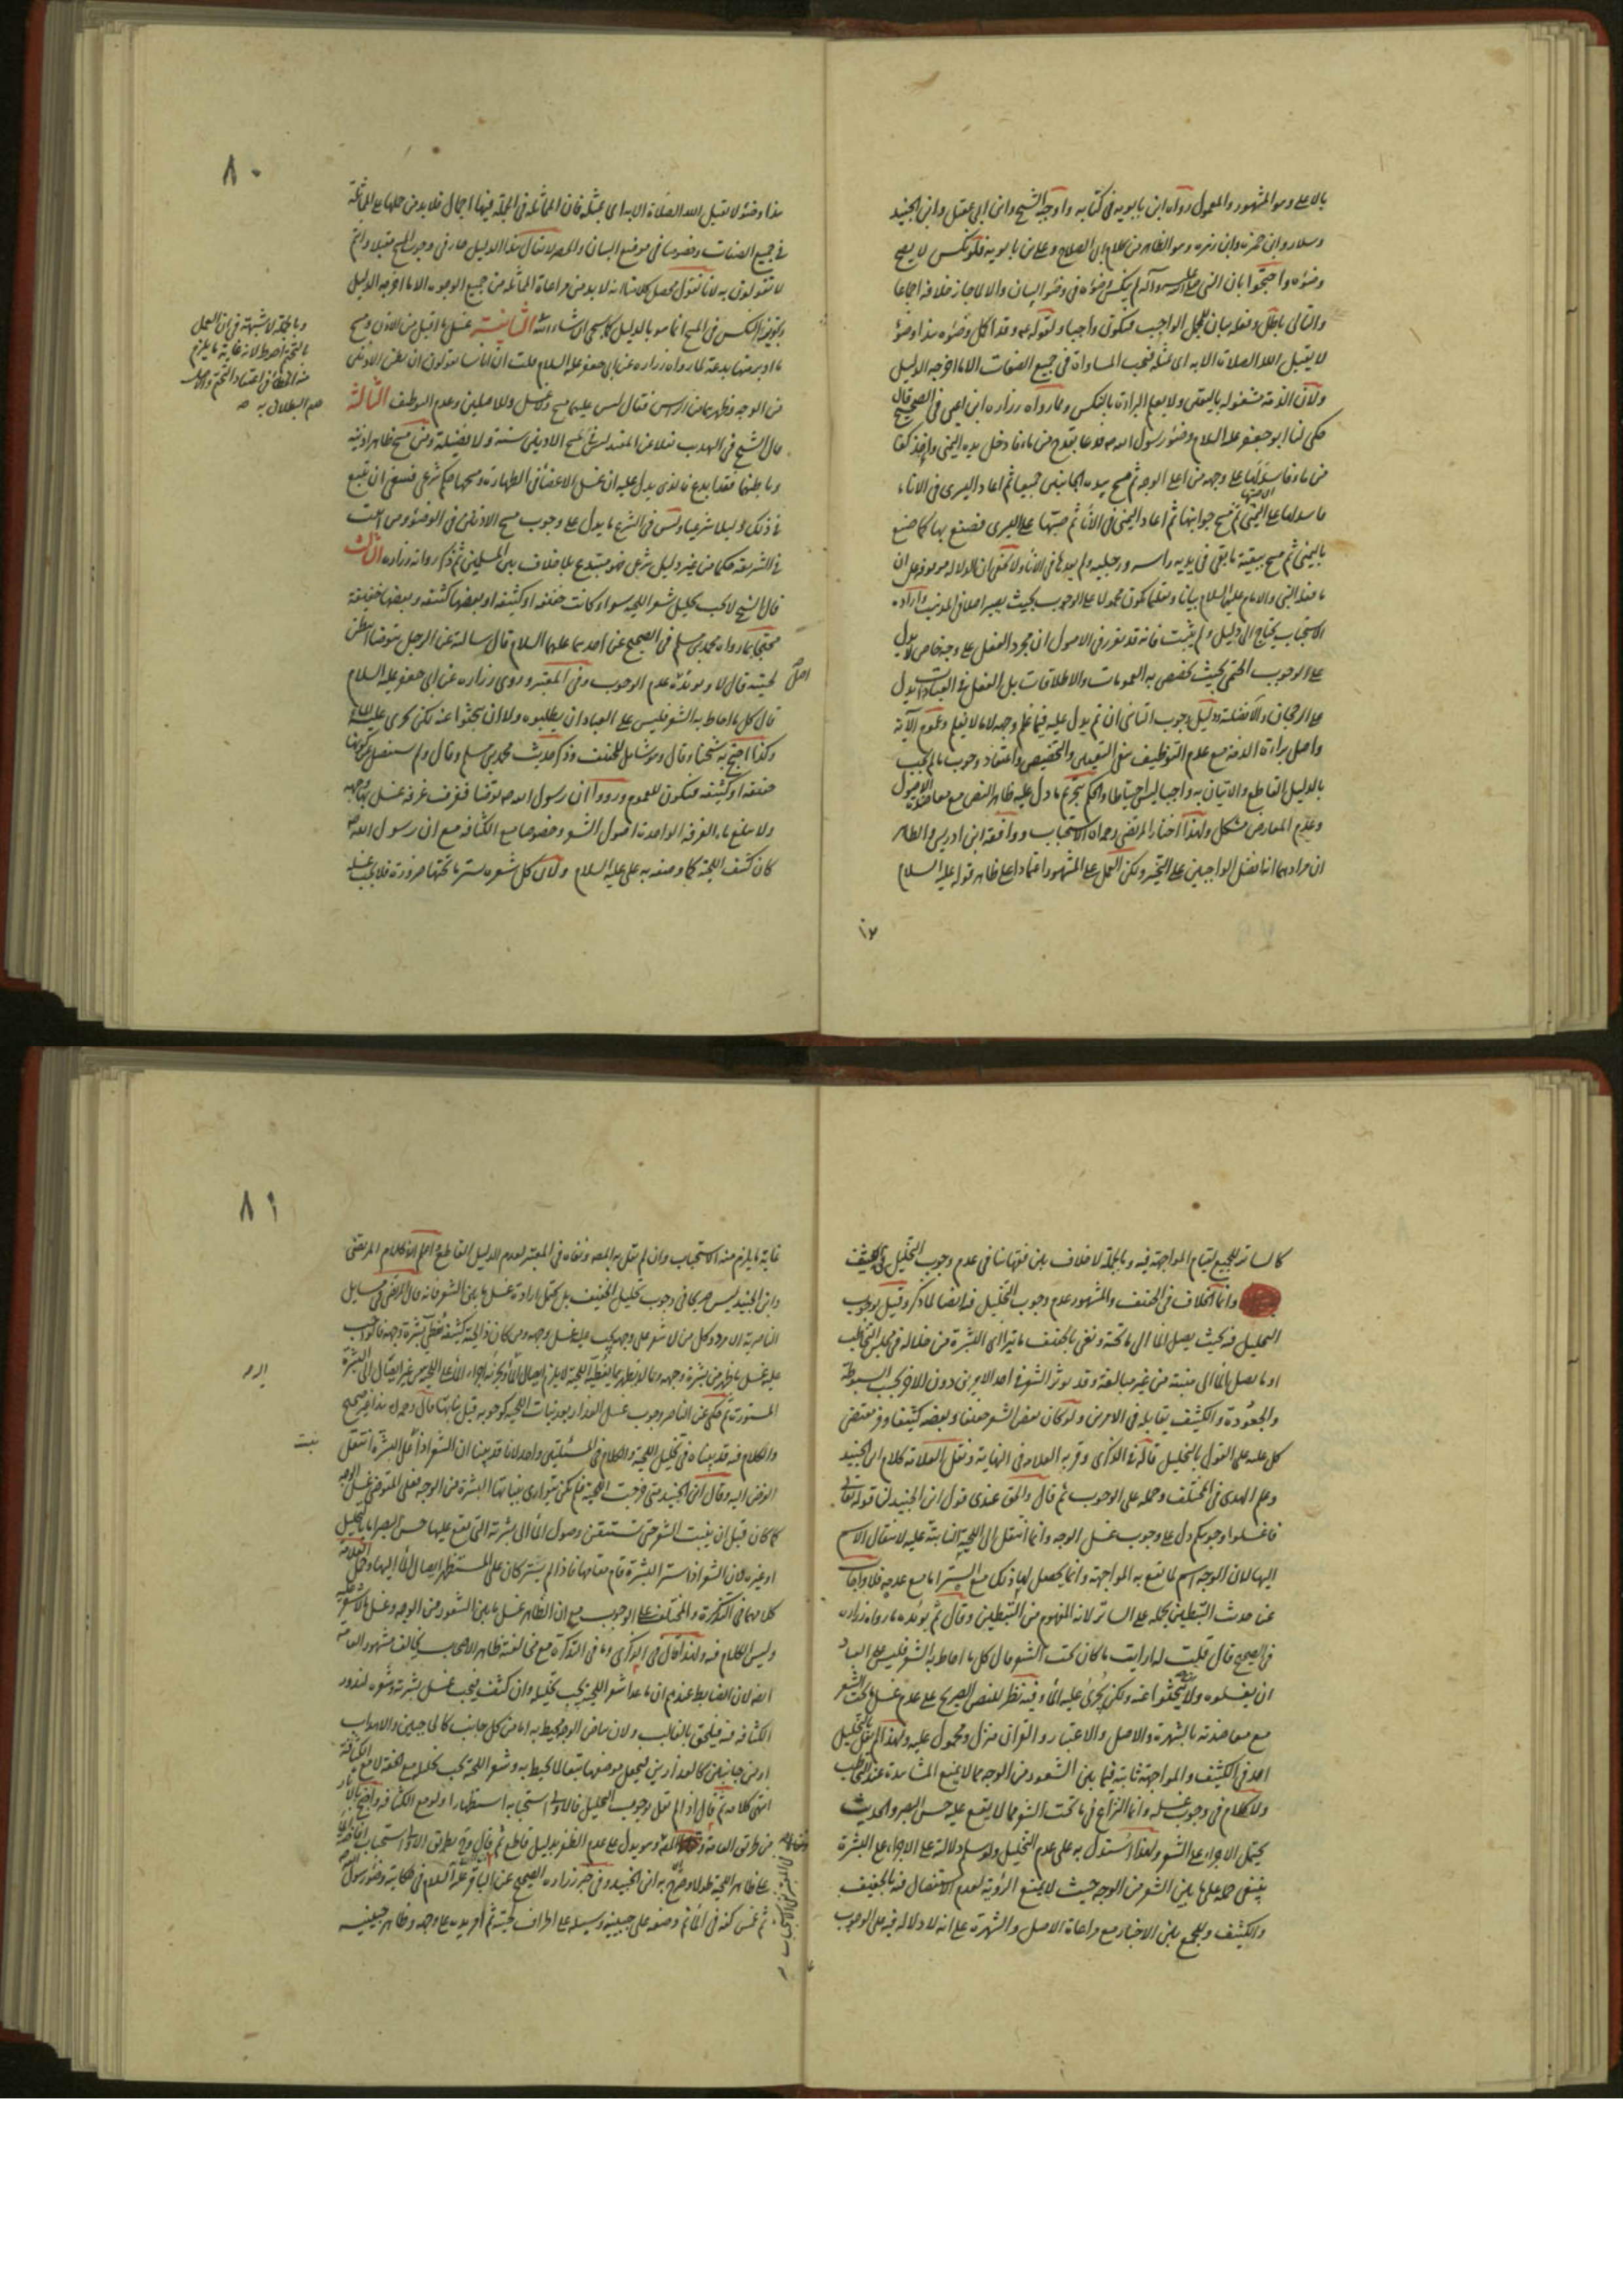 بالاعلى وهو المشهور والمعمول رواه ابن بابويه في كتابه واوجبه الشيخ وابن ابي عقيل وابن الجنيد
وسلار وابن حمزه وابن زهره وهو الظاهر من كلام ابي الصلاح وعلي بن بابويه فلو نكس لا يصح
وضوءه واحتجوا بان النبي صلى الله عليه وآله لم ينكس وضوءه في وضوء البيان والا لما جاز خلافه اجماعا
والتالي باطل وفعله بيان للمجمل الواجب فيكون واجبا ولقوله ع وقد اكمل وضوءه هذا وضوء
لا يقبل الله الصلاة الا به اى بمثله فتجب المساواة في جميع الصفات الا ما اخرجه الدليل
ولان الذمة مشغوله باليقين ولا يعلم البراءة بالنكس ولما رواه زراره ابن اعين في الصحيح قال
حكى لنا ابو جعفر عليه السلام وضوء رسول الله ص فدعا بقدح من ماء فادخل يده اليمنى واخذ كفا
من ماء فاسدلها على وجهه من اعلى الوجه ثم مسح بيده الجانبين جميعا ثم اعاد اليسرى في الاناء
فاسدلها على اليمنى ثم مسح جوانبها ثم اعاد اليمنى في الاناء ثم صبها على اليسرى فصنع بها كما صنع
باليمنى ثم مسح ببقية ما بقي في يديه راسه ورجليه ولم يعدها في الاناء ولا يخفى ان الدلاله موقوفه على ان
ما فعله النبي والامام عليهما السلام بيانا وتعليما يكون محمولا على الوجوب بحيث يصير اصلا في المذهب وارادة
الاستحباب يحتاج الى دليل ولم يثبت فانه قد تقرر في الاصول ان مجرد الفعل على وجه خاص لا يدل
على الوجوب الحتمي بحيث يخصص به العمومات والاطلاقات بل الفعل في العبادات يدل
على الرجحان والافضلية ودليل وجوب التاسي ان تم يدل عليه فيما علم وجهه لا ما لا يعلم وعموم الآية
واصل براءة الذمة مع عدم التوظيف ينفي التعيين والتخصيص واعتقاد وجوب ما لم يجب
بالدليل القاطع والاتيان به واجبا ليس احتياطا والحكم بتحريم ما دل عليه ظاهر النص مع معاضدة الاصول
وعدم المعارض مشكل ولهذا اختار المرتضى رحمه الله الاستحباب ووافقه ابن ادريس والظاهر
ان مرادهما انه افضل الواجبين على التخيير ولكن العمل على المشهور اعتمادا على ظاهر قوله عليه السلام
٨٠
هذا وضوء لا يقبل الله الصلاة الا به اى بمثله فان المماثلة في الجملة فيها اجمال فلا بد من حملها على المماثلة
في جميع الصفات وخصوصا في موضع البيان والحصر لا يقال هذا الدليل جار في وجوب المسح مقبلا وانتم
لا تقولون به لانا نقول محصل كلامنا انه لا بد من مراعاة المماثلة من جميع الوجوه الا ما اخرجه الدليل
وتجويز النكس في المسح انما هو بالدليل كما سيجئ ان شاء الله الثانية غسل ما اقبل من الاذن ومسح
ما ادبر منها بدعة لما رواه زراره عن ابي جعفر عليه السلام قلت ان اناسا يقولون ان بطن الاذنين
من الوجه وظهرهما من الراس فقال ليس عليهما مسح ولا غسل وللاصلين وعدم التوظيف الثالثة
قال الشيخ في التهذيب نقلا عن المقنعة ليس في مسح الاذنين سنة ولا فضيلة ومن مسح ظاهر اذنيه
وباطنهما فقد ابدع فالذي يدل عليه ان غسل الاعضاء في الطهارة ومسحها حكم شرعي فينبغي ان يتبع
في ذلك دليلا شرعيا وليس في الشرع ما يدل على وجوب مسح الاذنين في الوضوء ومن اثبت
في الشريعة حكما من غير دليل شرعي فهو مبتدع بلا خلاف بين المسلمين ثم ذكر رواية زراره
قال الشيخ لا يجب تخليل شعر اللحية سواء كانت خفيفه او كثيفه او بعضها كثيفه وبعضها خفيفة
محتجا بما رواه محمد بن مسلم في الصحيح عن احدهما عليهما السلام قال سالته عن الرجل يتوضا ايبطن
لحيته قال لا ويؤيده عدم الوجوب وفي المعتبر وروى زراره عن ابي جعفر عليه السلام
قال كل ما احاط به الشعر فليس على العباد ان يطلبوه ولا ان يبحثوا عنه لكن يجرى عليه الماء
وكذا احتج به شيخنا وقال وهو شامل للخفيف وذكر حديث محمد بن مسلم وقال ولم يستفصل عن كونها
خفيفه او كثيفه فيكون للعموم ورووا ان رسول الله ص توضا فغرف غرفة غسل بها وجهه
ولا يبلغ ماء الغرفه الواحدة اصول الشعر وخصوصا مع الكثافه مع ان رسول الله ص
كان كثيف اللحية كما وصفه به علي عليه السلام ولان كل شعره يستر ما تحتها ضرورة فلا يجب غسله
وبالجملة لا شبهة في ان العمل
منه الخطاء في اعتقاد التحتم والاصل
عدم البطلان به
٨١
كالساتر للجميع لقيام المواجهة فيه وبالجملة لا خلاف بين فقهائنا في عدم وجوب التخليل في الكثيف
وانما الخلاف في الخفيف والمشهور عدم وجوب التخليل فيه ايضا لما ذكر وقيل بوجوب
التخليل فيه بحيث يصل الماء الى ما تحته ونعني بالخفيف ما يتراءى البشرة من خلاله في مجلس التخاطب
او ما يصل الماء الى منبته من غير مبالغة وقد يؤثر الشعر في احد الامرين دون الاخر بحسب السبوطة
والجعودة والكثيف يقابله في الامرين ولو كان بعض الشعر خفيفا وبعضه كثيفا وفر مقتضى
كل عليه على القول بالتخليل قاله في الذكرى وقربه العلامه في النهاية ونقل العلامة كلام ابن الجنيد
وعلم الهدى في المختلف وحمله على الوجوب ثم قال والحق عندي قول ابن الجنيد لنا قوله تعالى
فاغسلوا وجوهكم دل على وجوب غسل الوجه وانما انتقل الى اللحية النابتة عليه لانتقال الاسم
اليها لان الوجه اسم لما يقع به المواجهة وانما يحصل لها ذلك مع الستر اما مع عدمه فلا واجاب
عن حديث التبطين بحمله على الساتر لانه المفهوم من التبطين وقال ثم يؤيده ما رواه زراره
في الصحيح قال قلت له ارايت ما كان تحت الشعر قال كل ما احاط به الشعر فليس على العباد
ان يغسلوه ولا يبحثوا عنه ولكن يجرى عليه الماء وفيه نظر للنص الصريح على عدم غسل ما تحت الشعر
مع معاضدته بالشهرة والاصل والاعتبار والقرآن منزل ومحمول عليه ولهذا لم يقل بالتخليل
احد في الكثيف والمواجهة ثابتة فيما بين الشعور من الوجه مما لا يمنع المشاهدة عند التخاطب
ولا كلام في وجوب غسله وانما النزاع في ما تحت الشعر مما لا يقع عليه حس البصر والحديث
يحتمل الاجراء على الشعر ولهذا استدل به على عدم التخليل ولو سلم دلالته على الاجراء على البشرة
ينبغي حمله على ما بين الشعر من الوجه حيث لا يمنع الرؤية لعدم الاستفصال فيه بالخفيف
والكثيف وللجمع بين الاخبار مع مراعاة الاصل والشهرة على انه لا دلاله فيه على الوجوب
غاية ما يلزم منه الاستحباب وان لم يقل به المصنف ونفاه في المعتبر لعدم الدليل القاطع ثم اعلم ان كلام المرتضى
وابن الجنيد ليس صريحا في وجوب تخليل الخفيف بل يحتمل ارادة غسل ما بين الشعر فانه قال المرتضى في مسايل
الناصرية الامرد وكل من لا شعر على وجهه يجب عليه غسل وجهه ومن كان ذا لحية كثيفه تغطى بشرة وجهه فالواجب
عليه غسل ما ظهر من بشرة وجهه وما لا يظهر مما يغطيه اللحية لا يلزم ايصال الماء ويجزئه اجراء الماء على اللحية من غير ايصال الى البشرة
المستورة ثم حكى عن الناصر وجوب غسل العذار بعد نبات اللحيه كوجوبه قبل نباتها قال رحمه الله هذا غير صحيح
والكلام فيه قد بيناه في تخليل اللحية والكلام في المسئلتين واحد لانا قد بينا ان الشعر اذا علا البشرة انتقل
الفرض اليه وقال ابن الجنيد متى خرجت اللحية فلم تكن تتوارى بنباتها البشرة من الوجه فعلى المتوضئ غسل الوجه
كما كان قبل ان ينبت الشعر حتى يستيقن وصول الماء الى بشرته التي يقع عليها حس البصر اما بالتخليل
او غيره لان الشعر اذا ستر البشرة قام مقامها فاذا لم يستر كان على المستظهر ايصال الماء اليها وحمل العلامة
كلامهما في التذكرة والمختلف على الوجوب مع ان الظاهر غسل ما بين الشعور من الوجه وغسل ما لا شعر عليه
وليس الكلام فيه ولهذا قال في الذكرى وما في التذكرة مع مخالفته ظاهر الاصحاب يخالف مشهور العامة
ايضا لان الضابط عندهم ان ما عدا شعر اللحية يجب تخليله وان كثف فيجب غسل بشرته وشعره لندور
الكثافه فيه فيلحق بالغالب ولان بياض الوجه محيط به اما من كل جانب كالحاجبين والاهداب
او من جانبين كالعذارين فيجعل موضعها تبعا لما يحيط به وشعر اللحية يجب تخليله مع الخفة لا مع الكثافة
انتهى كلامه ثم قال اذا لم نقل بوجوب التخليل فالاولى استحبابه استظهارا ولو مع الكثافه
ثم غمس كفه في الماء ثم وضعه على جبينه وسيله على اطراف لحيته ثم امر يده على وجهه وظاهر جبينه
نبت